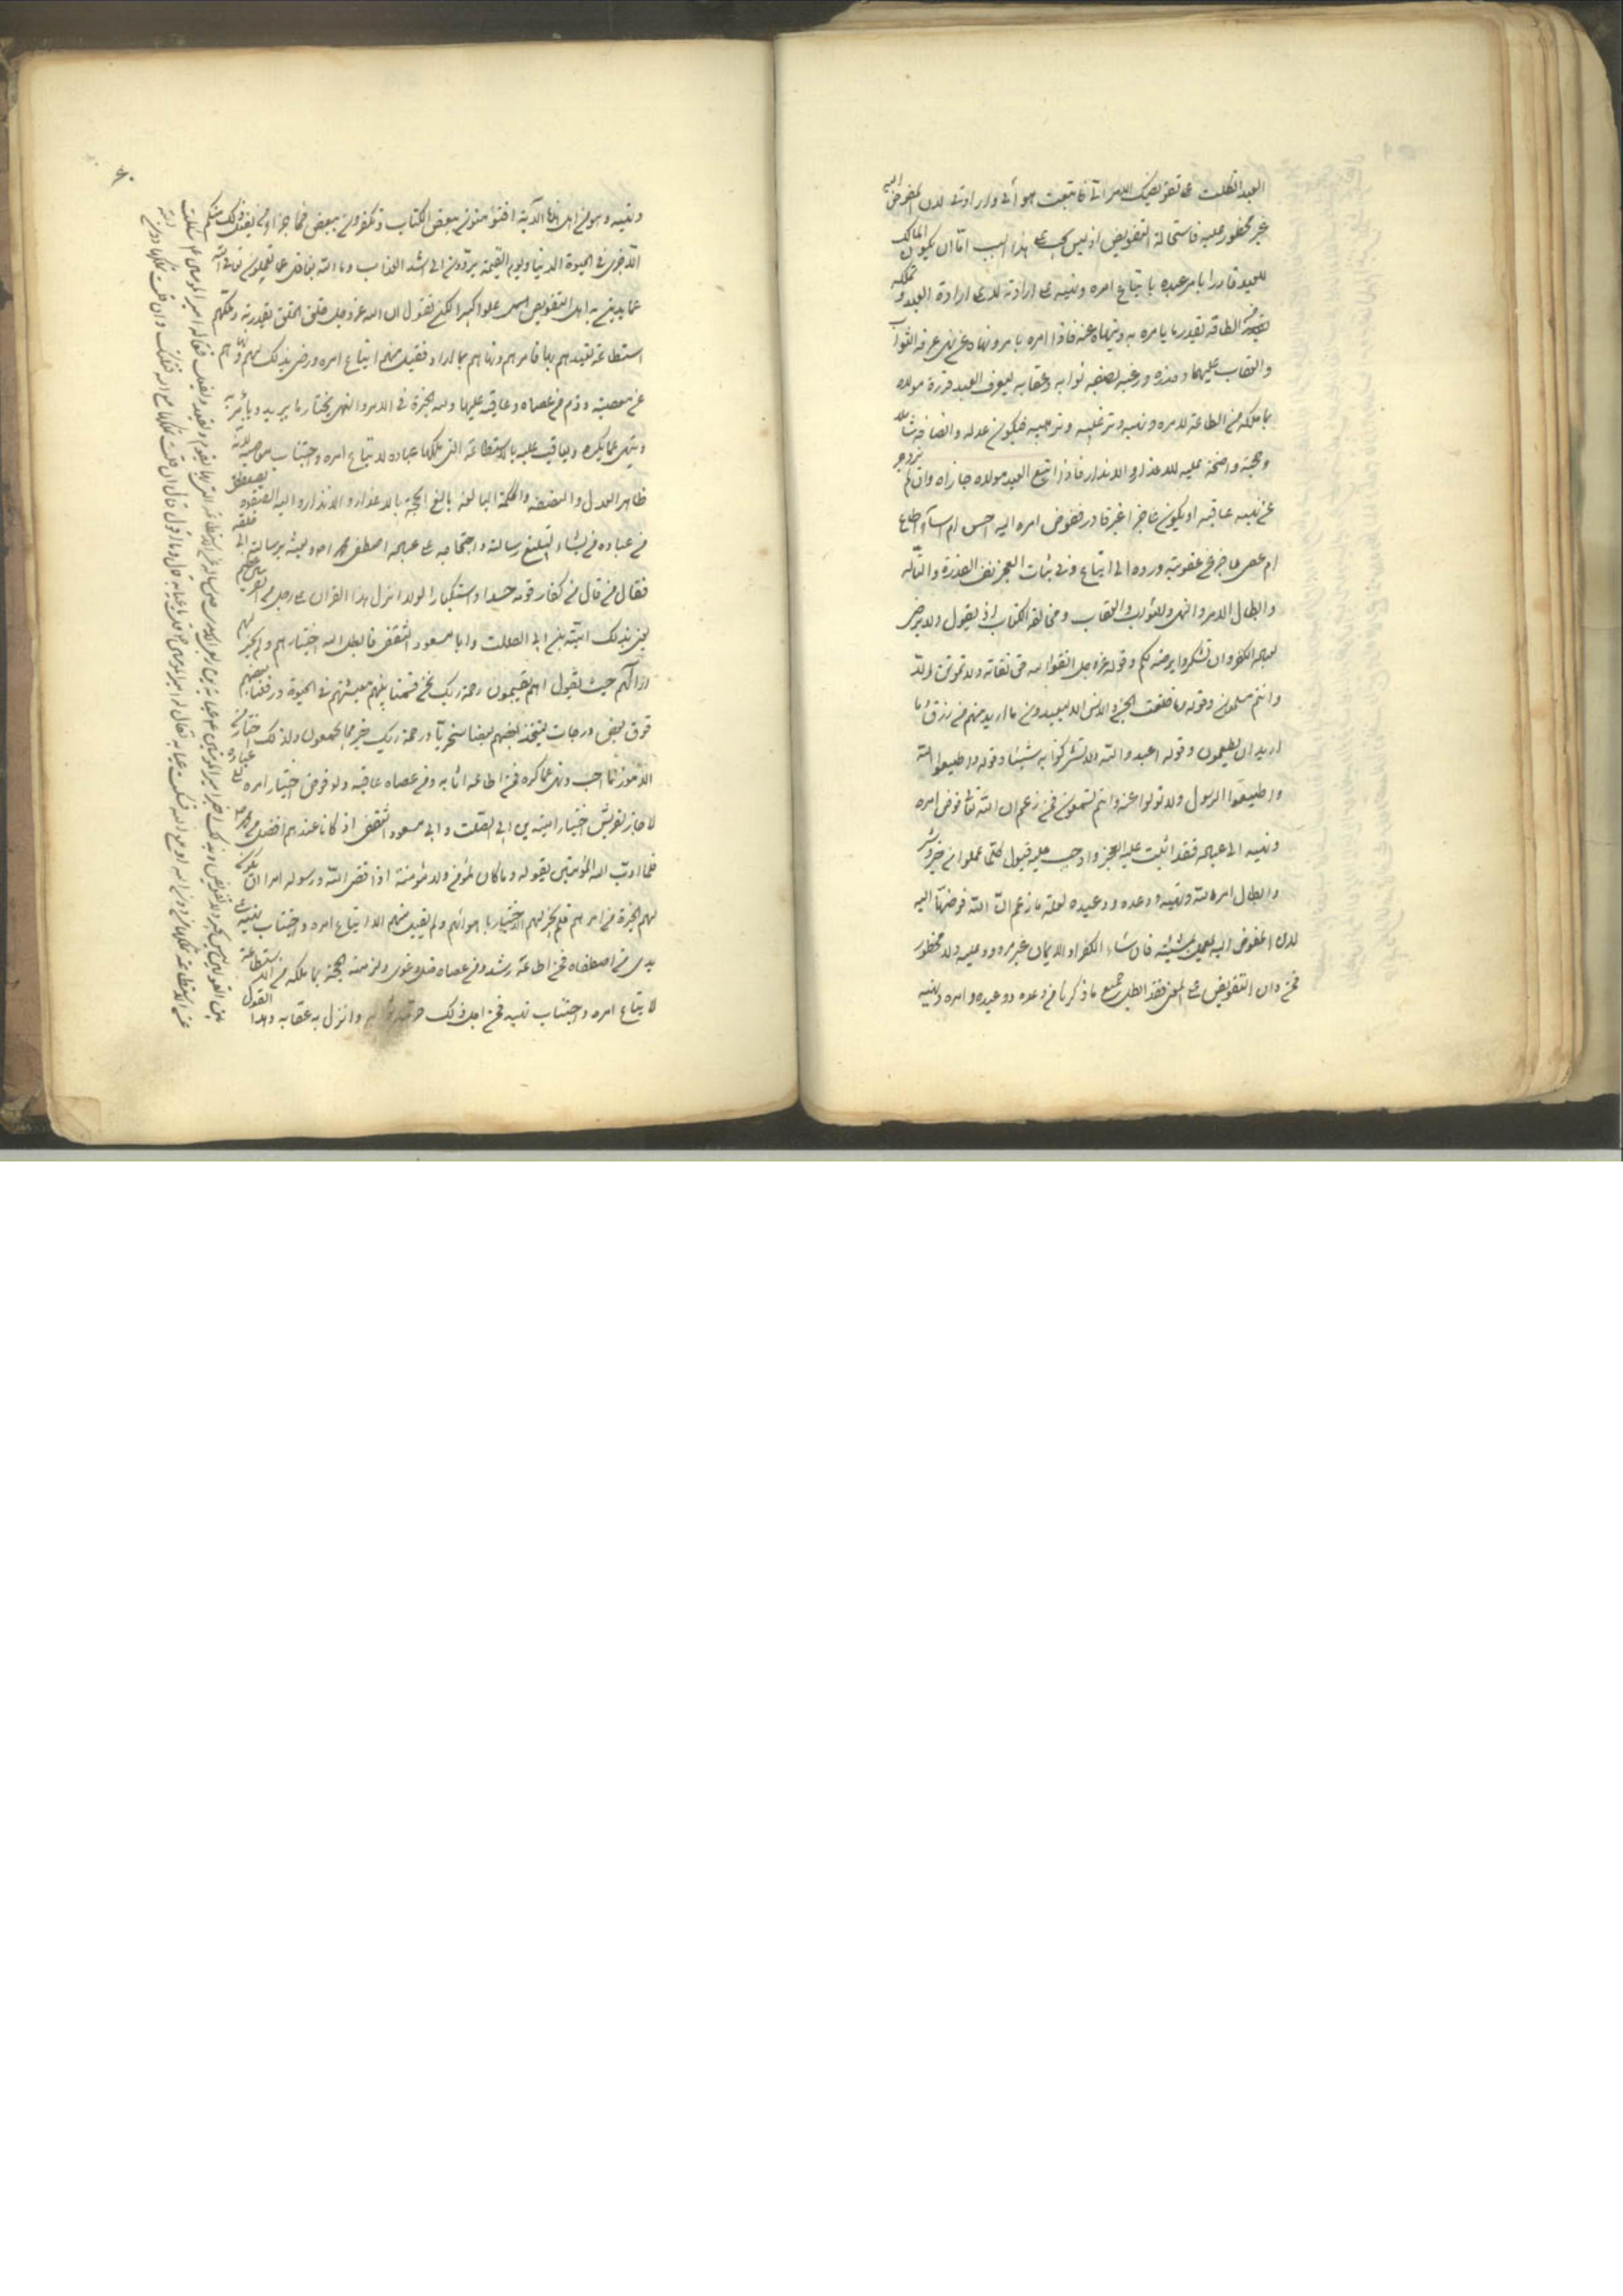 العبد اتكلت على تفويضك الامر الي فاتبعت هوائي وارادتي لان المفوض اليه
غير محظور عليه فاستحالة التفويض اوليس يجب على هذا السبب اما ان يكون المالك
للعبد قادرا يامر عبده باتباع امره ونهيه على ارادته لا على ارادة العبد ويملكه
من الطاقة بقدر ما يامره به وينهاه عنه فاذا امره بامر ونهاه عن نهي عرفه الثواب
والعقاب عليهما وحذره ورغبه بصفة ثوابه وعقابه ليعرف العبد قدرة مولاه
بما ملكه من الطاقة لامره ونهيه وترغيبه وترهيبه فيكون عدله وانصافه شاملا
وحجة واضحة عليه للاعذار والانذار فاذا اتبع العبد مولاه جازاه واذا لم يزدجر
عن نهيه عاقبه او يكون عاجزا غير قادر ففوض امره اليه احسن ام اساء اطاع
ام عصى عاجز عن عقوبته ورده الى اتباع وفي اثبات العجز نفي القدرة والتأله
وابطال الامر والنهي والثواب والعقاب ومخالفة الكتاب اذ يقول ولا يرضى
لعباده الكفر وان تشكروا يرضه لكم وقوله عز وجل اتقوا الله حق تقاته ولا تموتن الا
وانتم مسلمون وقوله وما خلقت الجن والانس الا ليعبدون ما اريد منهم من رزق وما
اريد ان يطعمون وقوله اعبدوا الله ولا تشركوا به شيئا وقوله واطيعوا الله
واطيعوا الرسول ولا تولوا عنه وانتم تسمعون فمن زعم ان الله تعالى فوض امره
ونهيه الى عباده فقد اثبت عليه العجز واوجب عليه قبول كلما عملوا من خير وشر
وابطل امر الله ونهيه ووعده ووعيده لعلة ما زعم ان الله فوضها اليه
لان المفوض اليه يعمل بمشيته فان شاء الكفر او الايمان غير مردود عليه ولا محظور
فمن دان بالتفويض على المعنى فقد ابطل جميع ما ذكرنا من وعده ووعيده وامره ونهيه
۶۰
ونهيه وهو من اهل هذه الآية افتؤمنون ببعض الكتاب وتكفرون ببعض فما جزاء من يفعل ذلك منكم
الا خزي في الحيوة الدنيا ويوم القيمة يردون الى اشد العذاب وما الله بغافل عما تعملون تعالى الله
عما يدين به اهل التفويض علوا كبيرا لكن نقول ان الله عز وجل خلق الخلق بقدرته وملكهم
استطاعة تعبدهم بها فامرهم ونهاهم بما اراد فقبل منهم اتباع امره ورضي بذلك لهم ونهاهم
عن معصيته وذم من عصاه وعاقبه عليها ولله الخيرة في الامر والنهي يختار ما يريد ويأمر به
وينهى عما يكره ويعاقب عليه بالاستطاعة التي ملكها عباده لاتباع امره واجتناب معاصيه لانه
ظاهر العدل والنصفة والحكمة البالغة بالغ الحجة بالاعذار والانذار واليه الصفوة يصطفي
من عباده من يشاء لتبليغ رسالته واحتجاجه على عباده اصطفى محمدا ص وبعثه برسالته الى خلقه
فقال من قال من كفار قومه حسدا واستكبارا لولا انزل هذا القرآن على رجل من القريتين عظيم
يعني بذلك امية بن ابي الصلت وابا مسعود الثقفي فابطل الله اختيارهم ولم يجز لهم
اراءهم حيث يقول اهم يقسمون رحمة ربك نحن قسمنا بينهم معيشتهم في الحيوة ورفعنا بعضهم
فوق بعض درجات ليتخذ بعضهم بعضا سخريا ورحمة ربك خير مما يجمعون ولذلك اختار من
الامور ما احب ونهى عما كره فمن اطاعه اثابه ومن عصاه عاقبه ولو فوض اختيار امره الى عباده
لاجاز لقريش اختيار امية بن ابي الصلت وابي مسعود الثقفي اذ كانا عندهم افضل من محمد ص
فلما ادب الله المؤمنين بقوله وما كان لمؤمن ولا مؤمنة اذا قضى الله ورسوله امرا ان يكون
لهم الخيرة من امرهم فلم يجز لهم الاختيار باهوائهم ولم يقبل منهم الا اتباع امره واجتناب نهيه
يدي من اصطفاه فمن اطاعه رشد ومن عصاه ضل وغوى ولزمته الحجة بما ملكه من الاستطاعة
لاتباع امره واجتناب نهيه فمن اجل ذلك حرمه ثوابه وانزل به عقابه وهذا القول
بين القولين ليس بجبر ولا تفويض وبذلك اخبر امير المؤمنين ع عباية بن ربعي الاسدي حين ساله عن الاستطاعة التي بها يقوم ويقعد ويفعل فقال له امير المؤمنين ع سالت
عن الاستطاعة تملكها من دون الله او مع الله فسكت عباية فقال له امير المؤمنين ع قل يا عباية قال وما اقول قال ان قلت تملكها مع الله قتلتك وان قلت تملكها دون الله